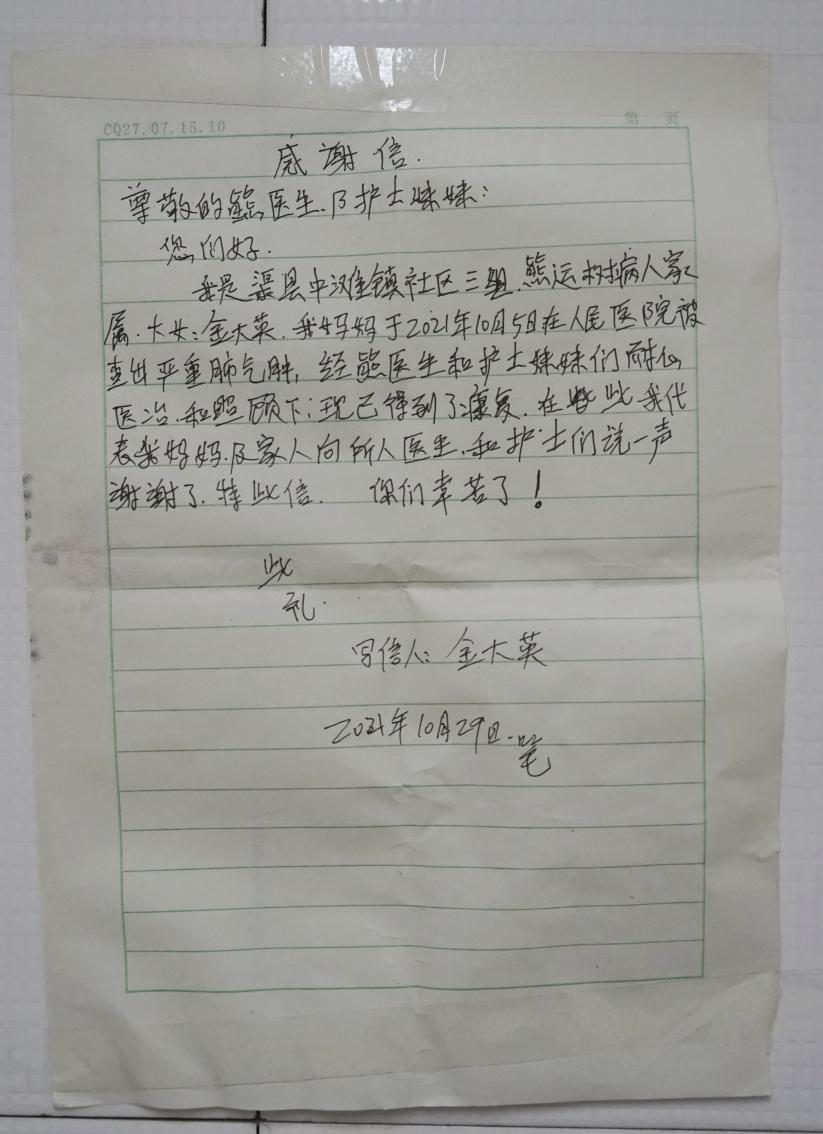 CQ27.07.15.10
第 页
感谢信.
尊敬的熊医生.及护士妹妹:
您们好.
我是渠县中滩镇社区三组.熊运树病人家
属.大女:金大英.我妈妈于2021年10月5日在人民医院被
查出严重肺气肿,经熊医生和护士妹妹们耐心
医治.和照顾下;现已得到了康复.在此我代
表我妈妈.及家人向所人医生.和护士们说一声
谢谢了.特此信. 你们幸苦了!
此
礼.
写信人:金大英
2021年10月29日.笔